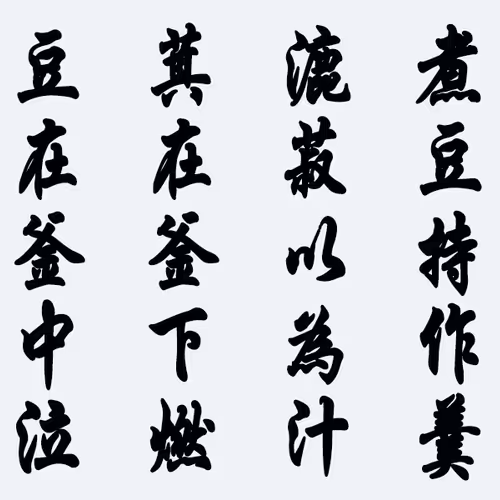 煮豆持作羹
漉菽以為汁
萁在釜下燃
豆在釜中泣